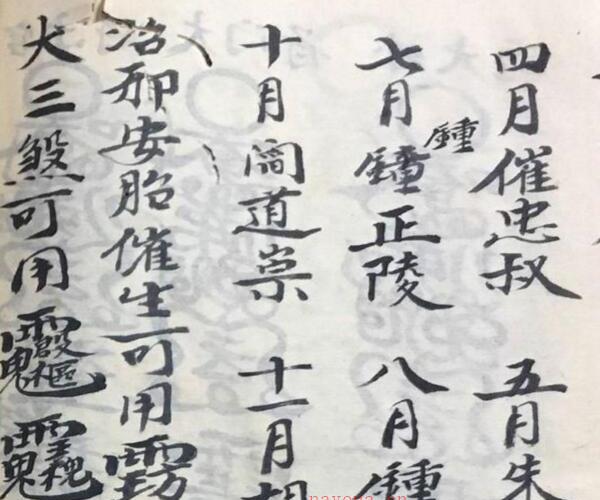 四月催忠叔 五月朱
七月鐘正陵 八月鍾
鍾
十月閻道崇 十一月胡
治邪安胎催生可用
大三煞可用